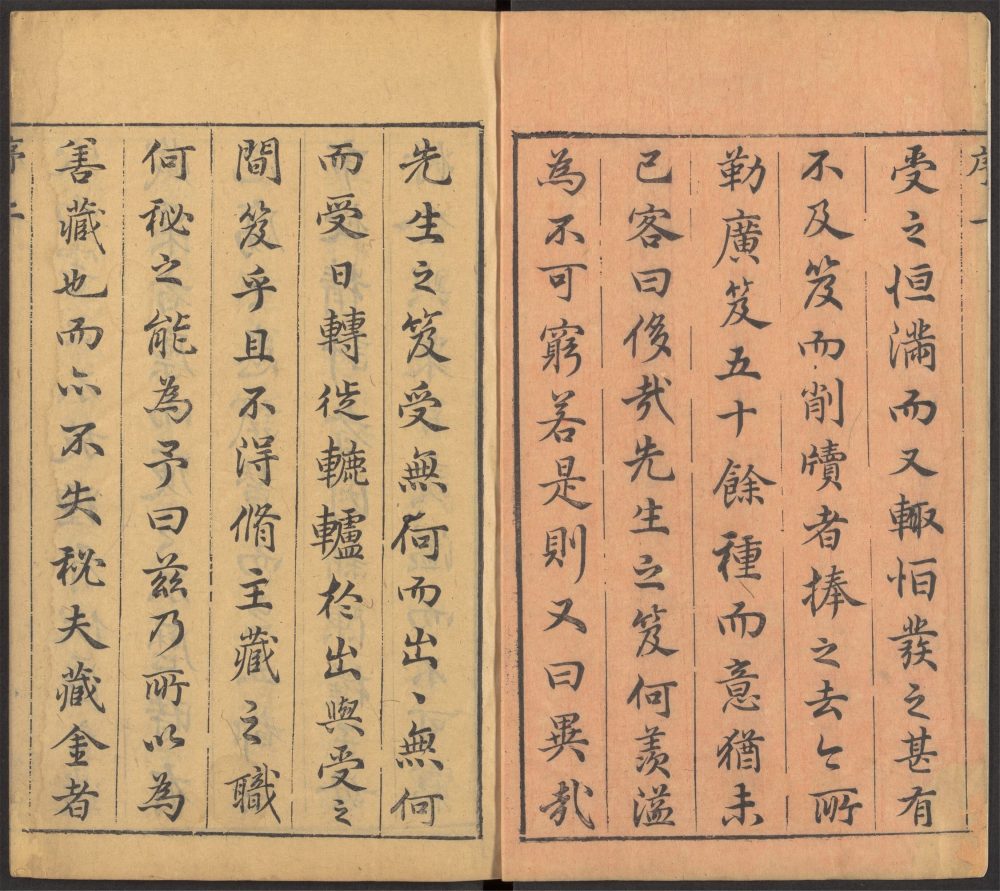 序一
受之恒滿而又輙怕發之甚有
不及笈而削牘者捧之去今所
勒廣笈五十餘種而意猶未
已客曰侈哉先生之笈何羨溢
為不可窮若是則又曰異哉
先生之笈受無何而出〻無何
而受日轉徙轆轤於出與受之
間笈乎且不得脩主藏之職
何秘之能為予曰茲乃所以為
善藏也而亦不失秘夫藏金者
序二